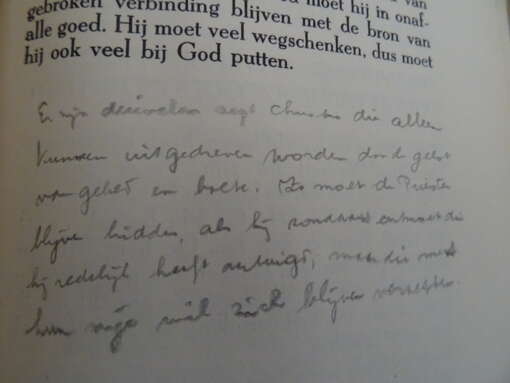 van
moet hij in onaf-
gebroken verbinding blijven met de bron van
alle goed. Hij moet veel wegschenken, dus moet
hij ook veel bij God putten.
Er zijn duivelen zegt Christus die alleen
kunnen uitgedreven worden door de geest
van gebed en boete. Zo moet de Priester
blijven bidden, als hij zondaars ontmoet die
hij redelijk heeft overtuigd, maar die met
hun vrije wil zich blijven verzetten.